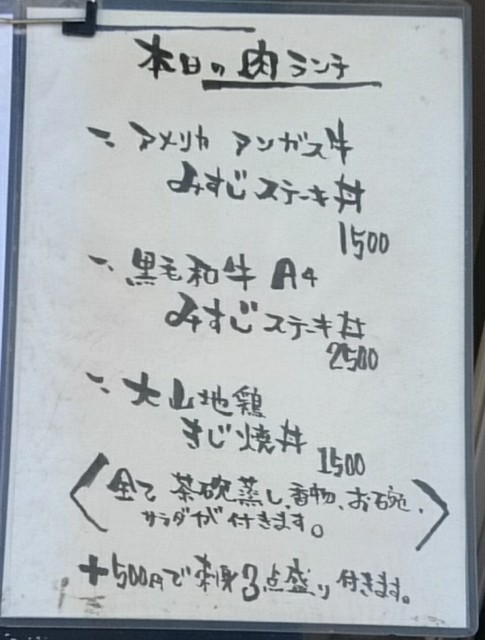 本日の肉ランチ
一、アメリカ アンガス牛
みすじステーキ丼
1500
一、黒毛和牛 A4
みすじステーキ丼
2500
一、大山地鶏
きじ焼丼
1500
全て 茶碗蒸し、香物、お碗、
サラダが付きます。
+500円で刺身3点盛り付きます。